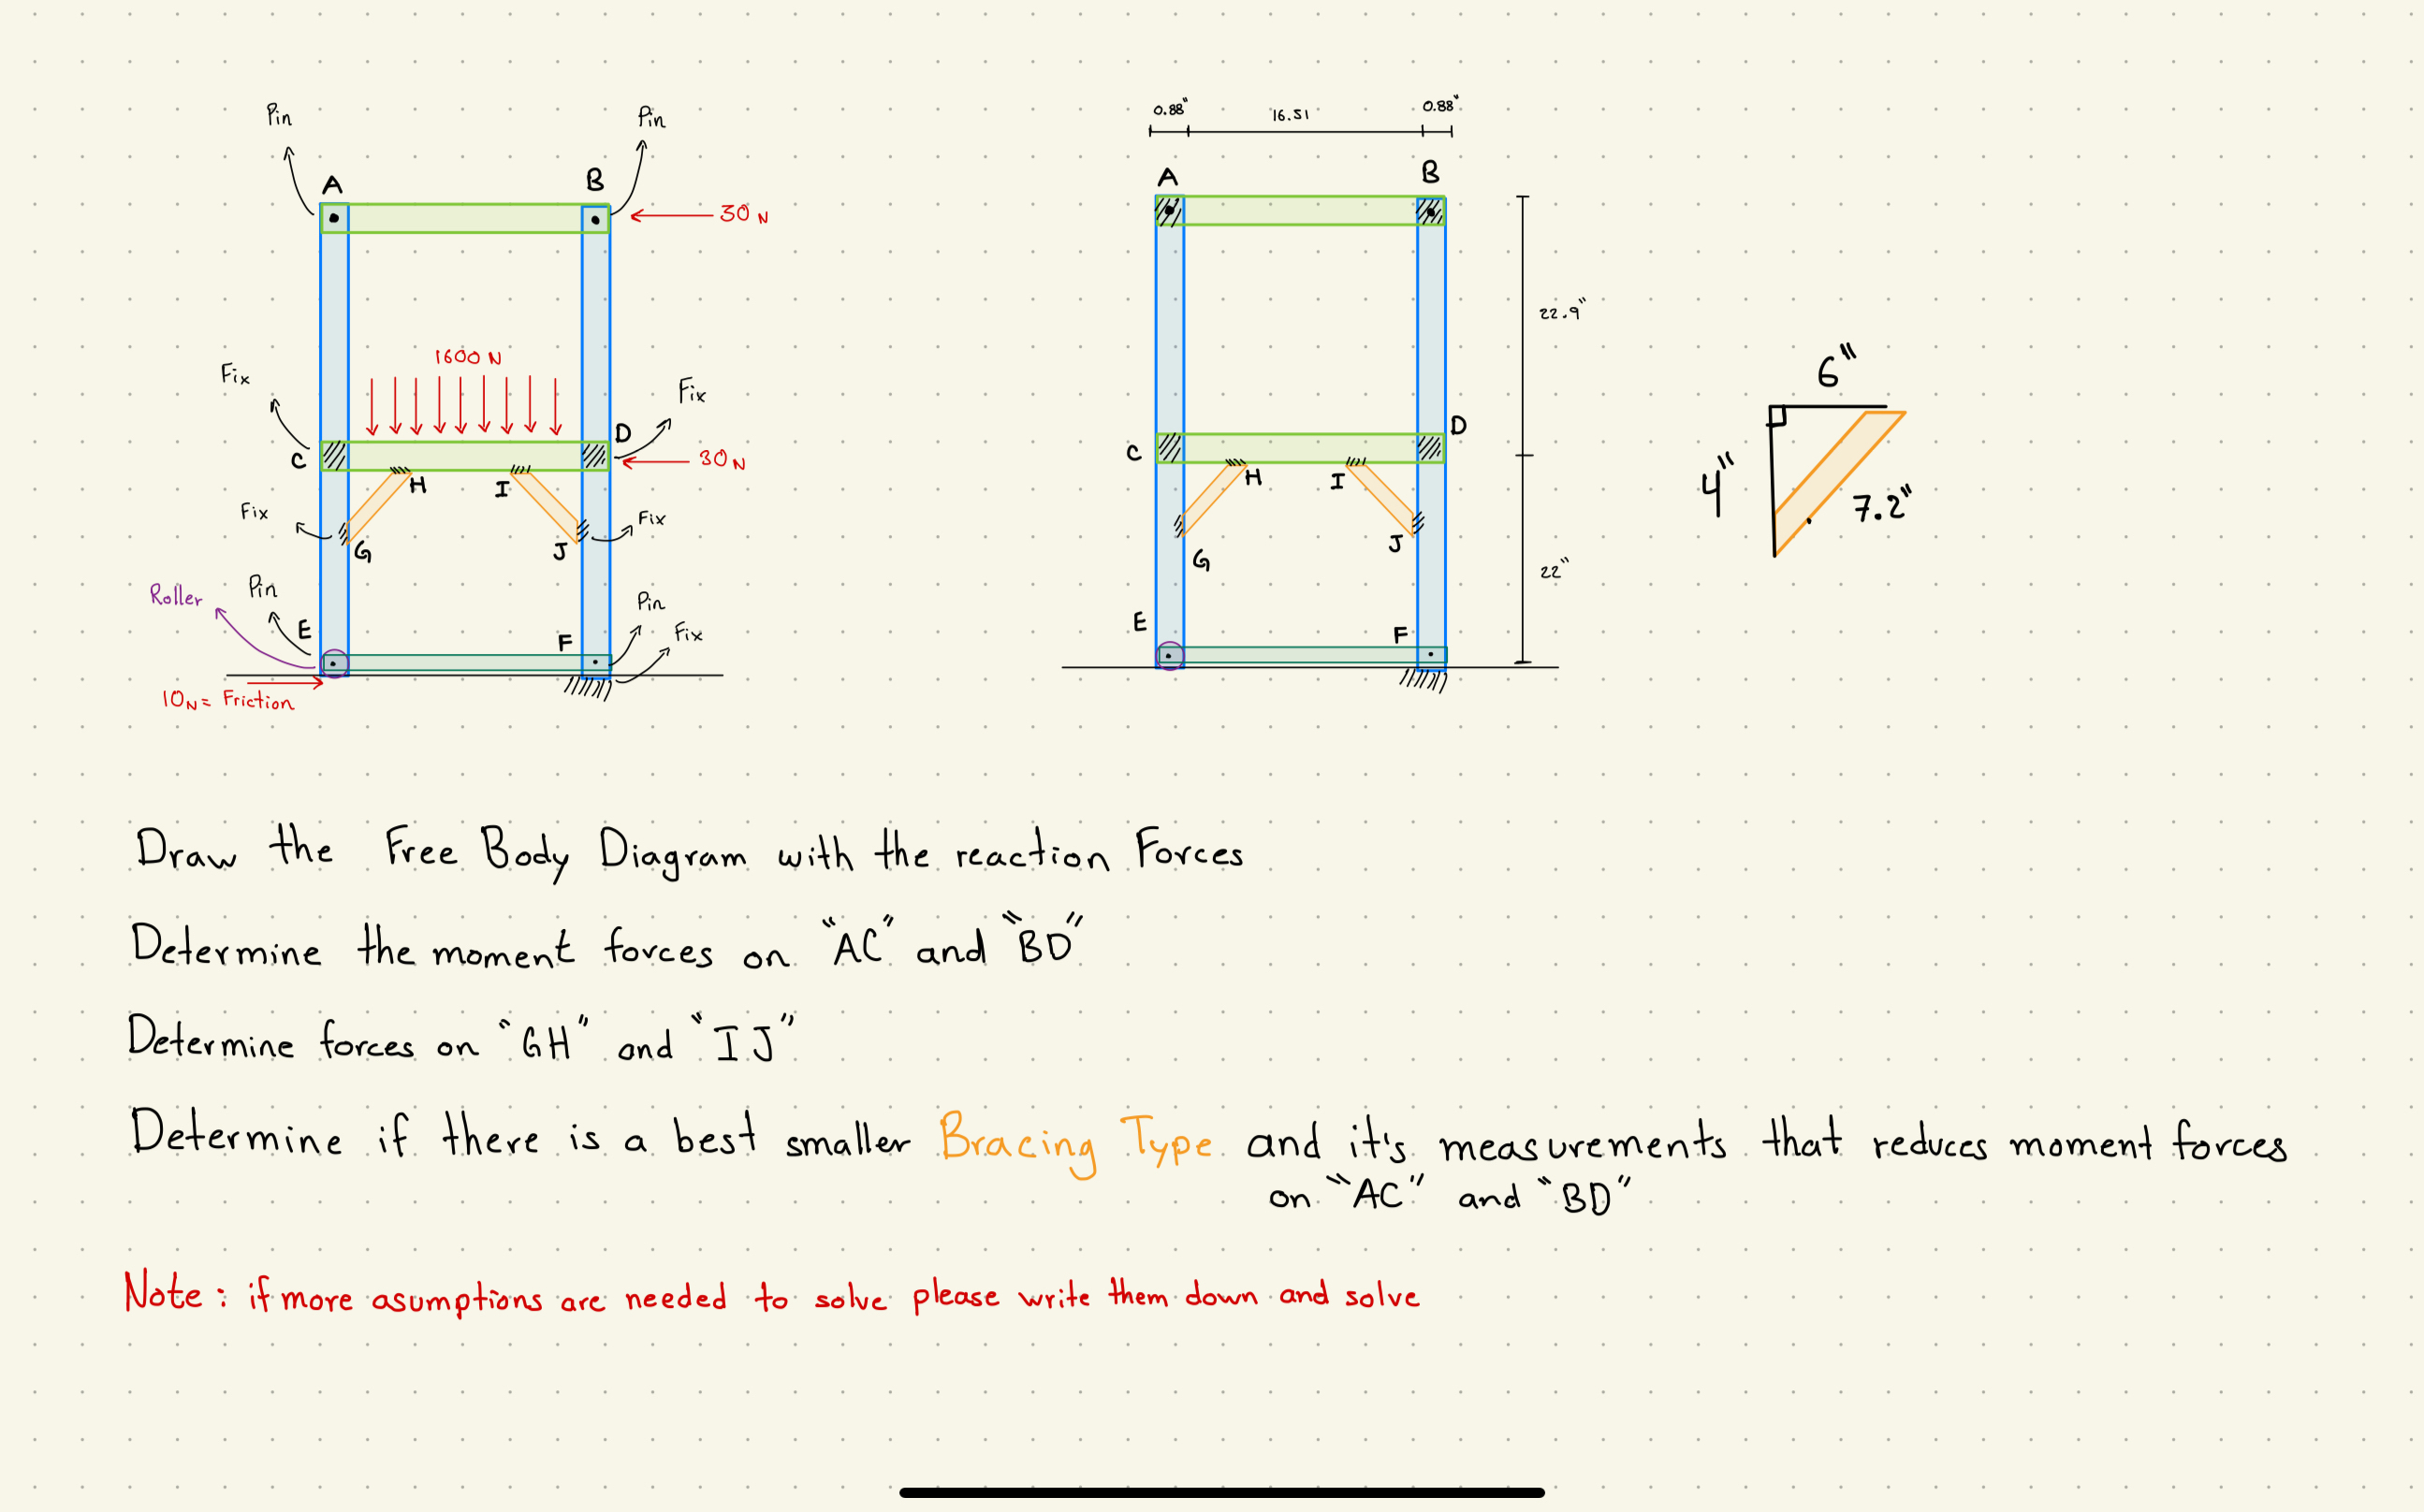 Pin
Pin
A
B
30 N
1600 N
Fix
Fix
C
D
30 N
H
I
Fix
Fix
G
J
Roller
Pin
E
F
Pin
Fix
10N = Friction
0.88"
16.51
0.88"
A
B
22.9"
C
D
H
I
G
J
22"
E
F
6"
4"
7.2"
Draw the Free Body Diagram with the reaction Forces
Determine the moment forces on "AC" and "BD"
Determine forces on "GH" and "IJ"
Determine if there is a best smaller Bracing Type and it's measurements that reduces moment forces
on "AC" and "BD"
Note: if more asumptions are needed to solve please write them down and solve